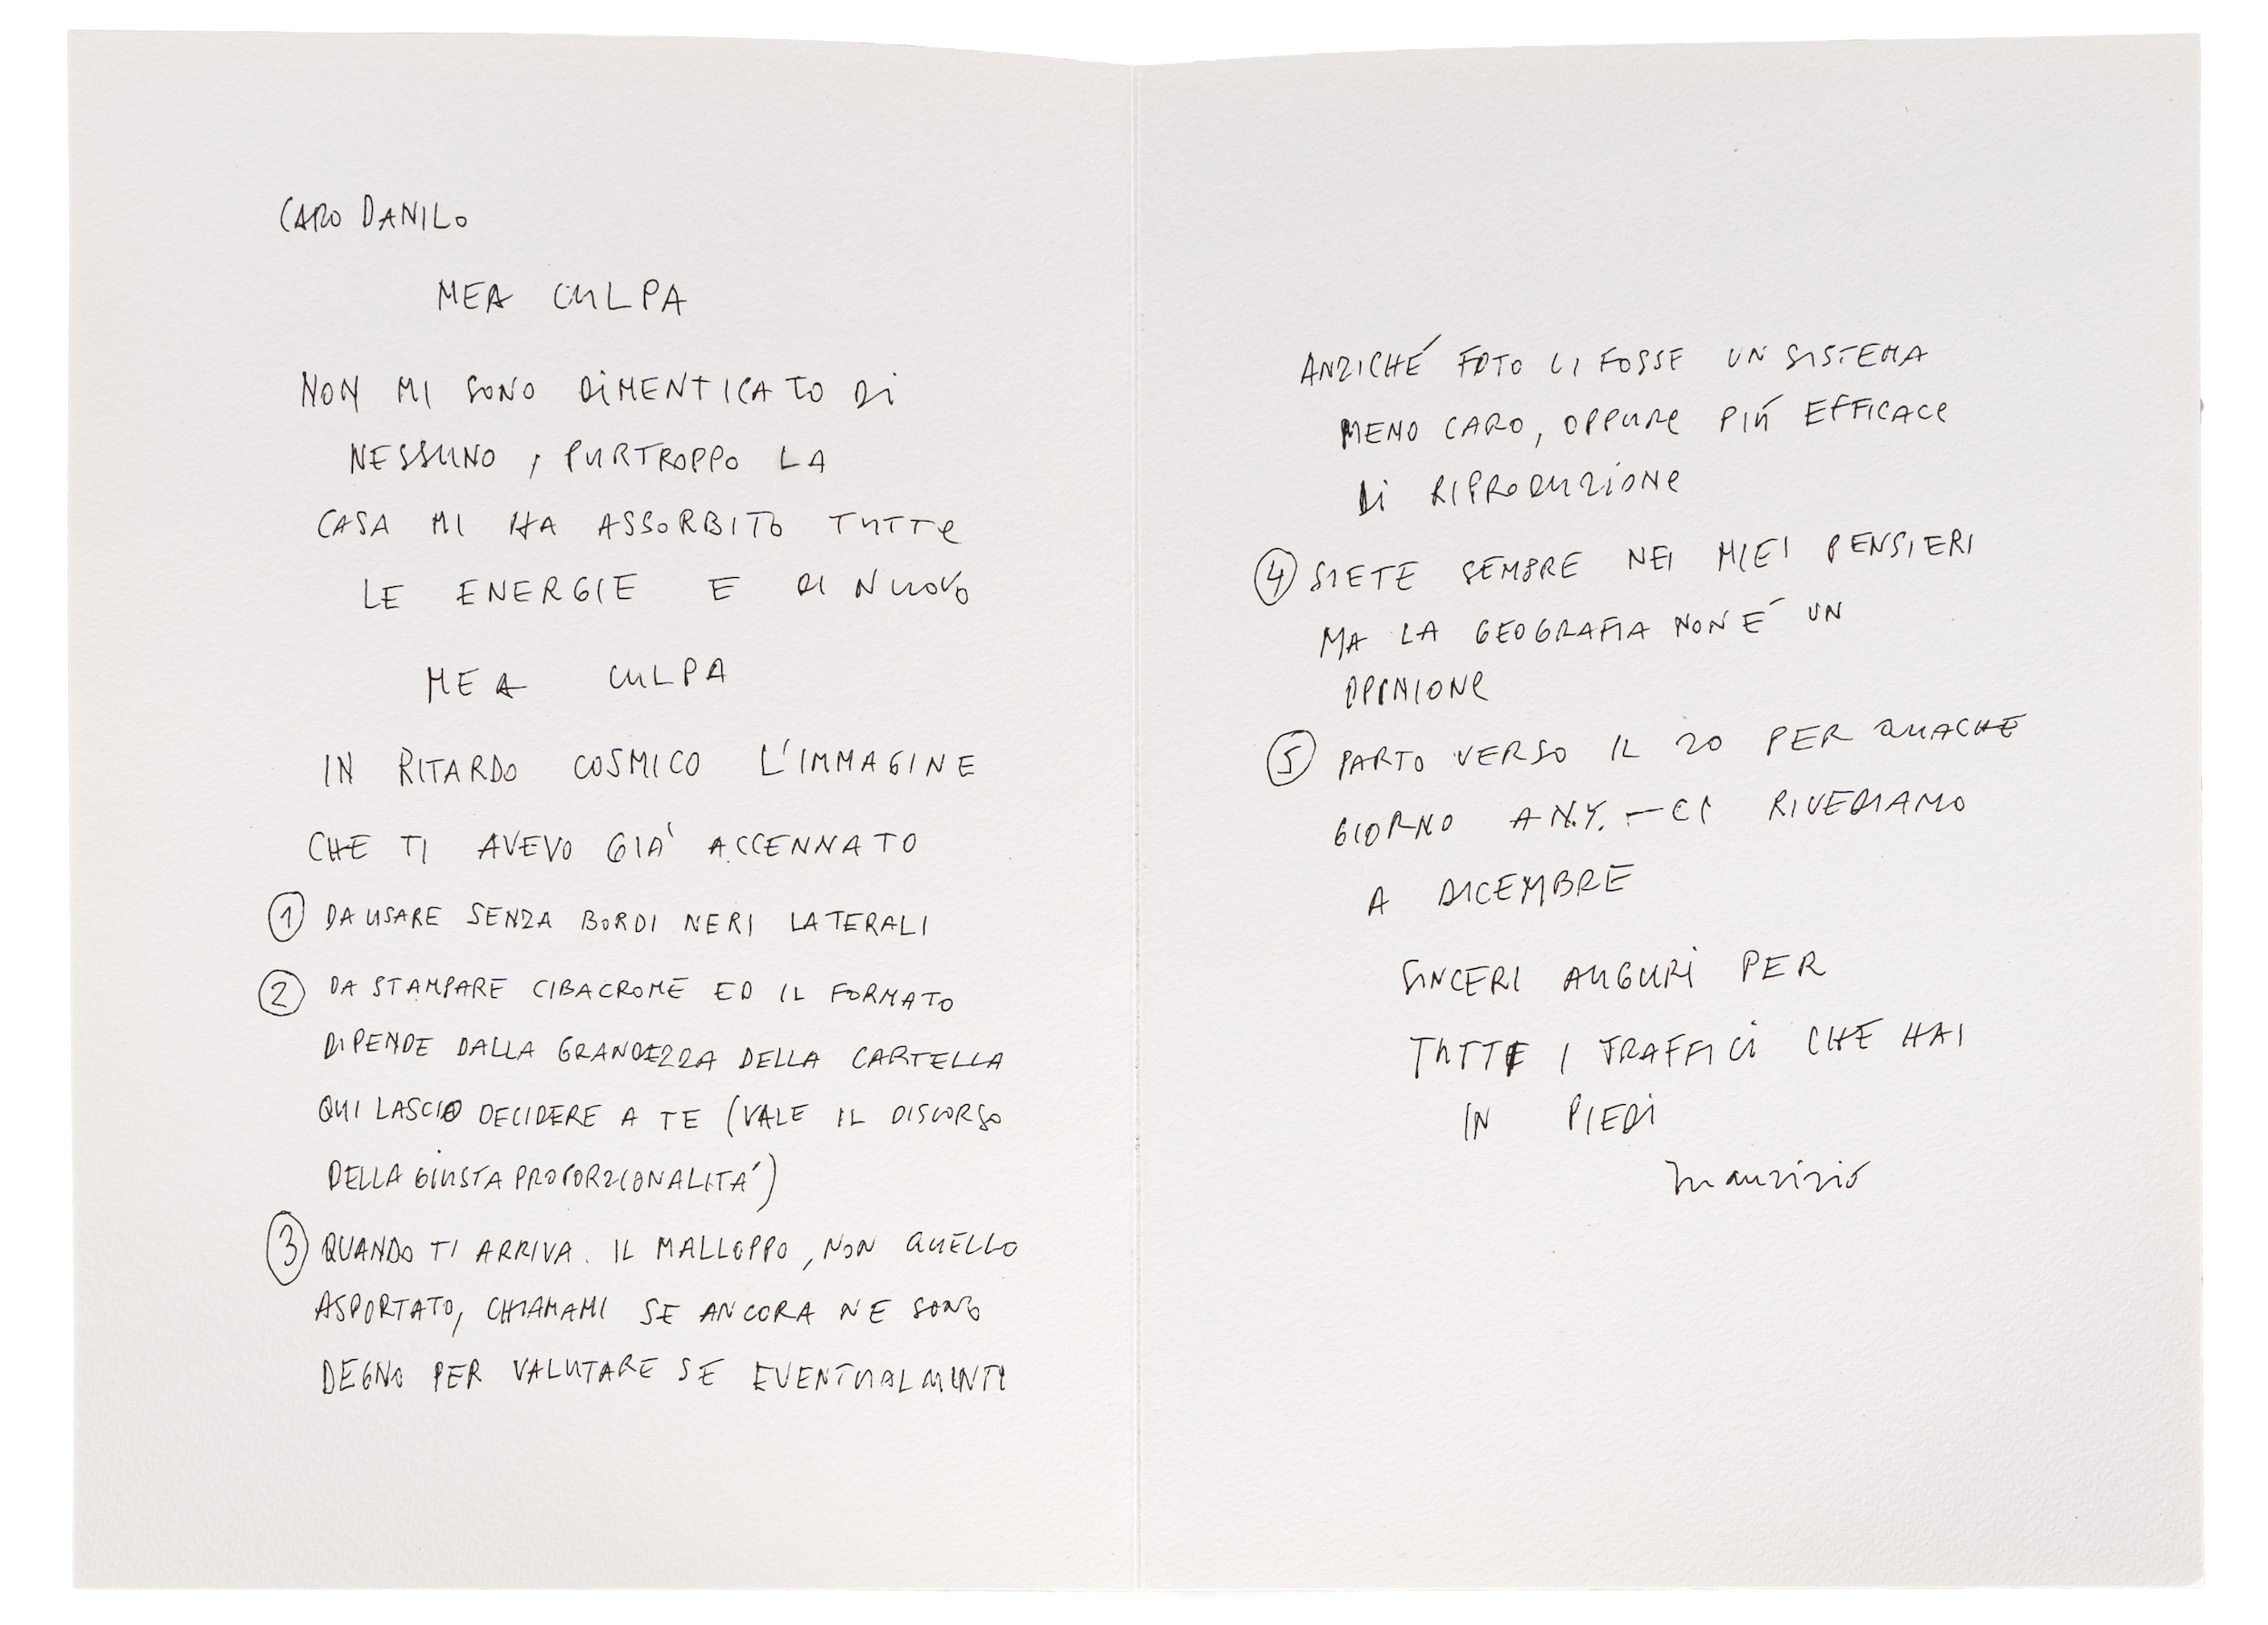 CARO DANILO
MEA CULPA
NON MI SONO DIMENTICATO DI
NESSUNO, PURTROPPO LA
CASA MI HA ASSORBITO TUTTE
LE ENERGIE E DI NUOVO
MEA CULPA
IN RITARDO COSMICO L'IMMAGINE
CHE TI AVEVO GIA' ACCENNATO
① DA USARE SENZA BORDI NERI LATERALI
② DA STAMPARE CIBACROME ED IL FORMATO
DIPENDE DALLA GRANDEZZA DELLA CARTELLA
QUI LASCIO DECIDERE A TE (VALE IL DISCORSO
DELLA GIUSTA PROPORZIONALITÁ)
③ QUANDO TI ARRIVA. IL MALLOPPO, NON QUELLO
ASPORTATO, CHIAMAMI SE ANCORA NE SONO
DEGNO PER VALUTARE SE EVENTUALMENTE
ANZICHÉ FOTO CI FOSSE UN SISTEMA
MENO CARO, OPPURE PIÚ EFFICACE
DI RIPRODUZIONE
④ SIETE SEMPRE NEI MIEI PENSIERI
MA LA GEOGRAFIA NON É UN
OPINIONE
⑤ PARTO VERSO IL 20 PER QUACHE
GIORNO A N.Y. - CI RIVEDIAMO
A DICEMBRE
SINCERI AUGURI PER
TUTTI I TRAFFICI CHE HAI
IN PIEDI
Maurizio